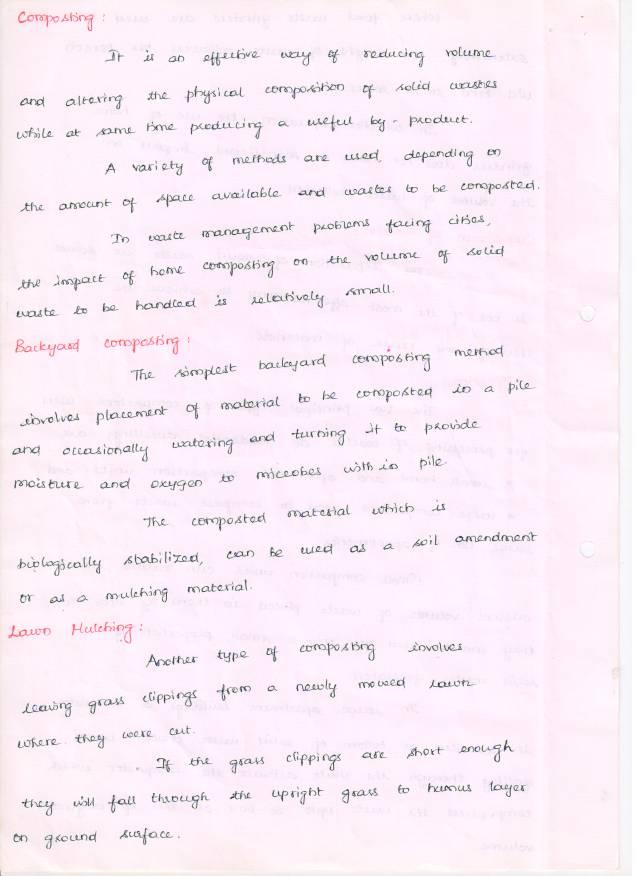 Composting :
It is an effective way of reducing volume
and altering the physical composition of solid wastes
while at same time producing a useful by-product.
A variety of methods are used, depending on
the amount of space available and wastes to be composted.
In waste management problems facing cities,
the impact of home composting on the volume of solid
waste to be handled is relatively small.
Backyard composting :
The simplest backyard composting method
involves placement of material to be composted in a pile
and occasionally watering and turning it to provide
moisture and oxygen to microbes with in pile.
The composted material which is
biologically stabilized, can be used as a soil amendment
or as a mulching material.
Lawn Mulching :
Another type of composting involves
leaving grass clippings from a newly mowed lawn
where they were cut.
If the grass clippings are short enough
they will fall through the upright grass to humus layer
on ground surface.